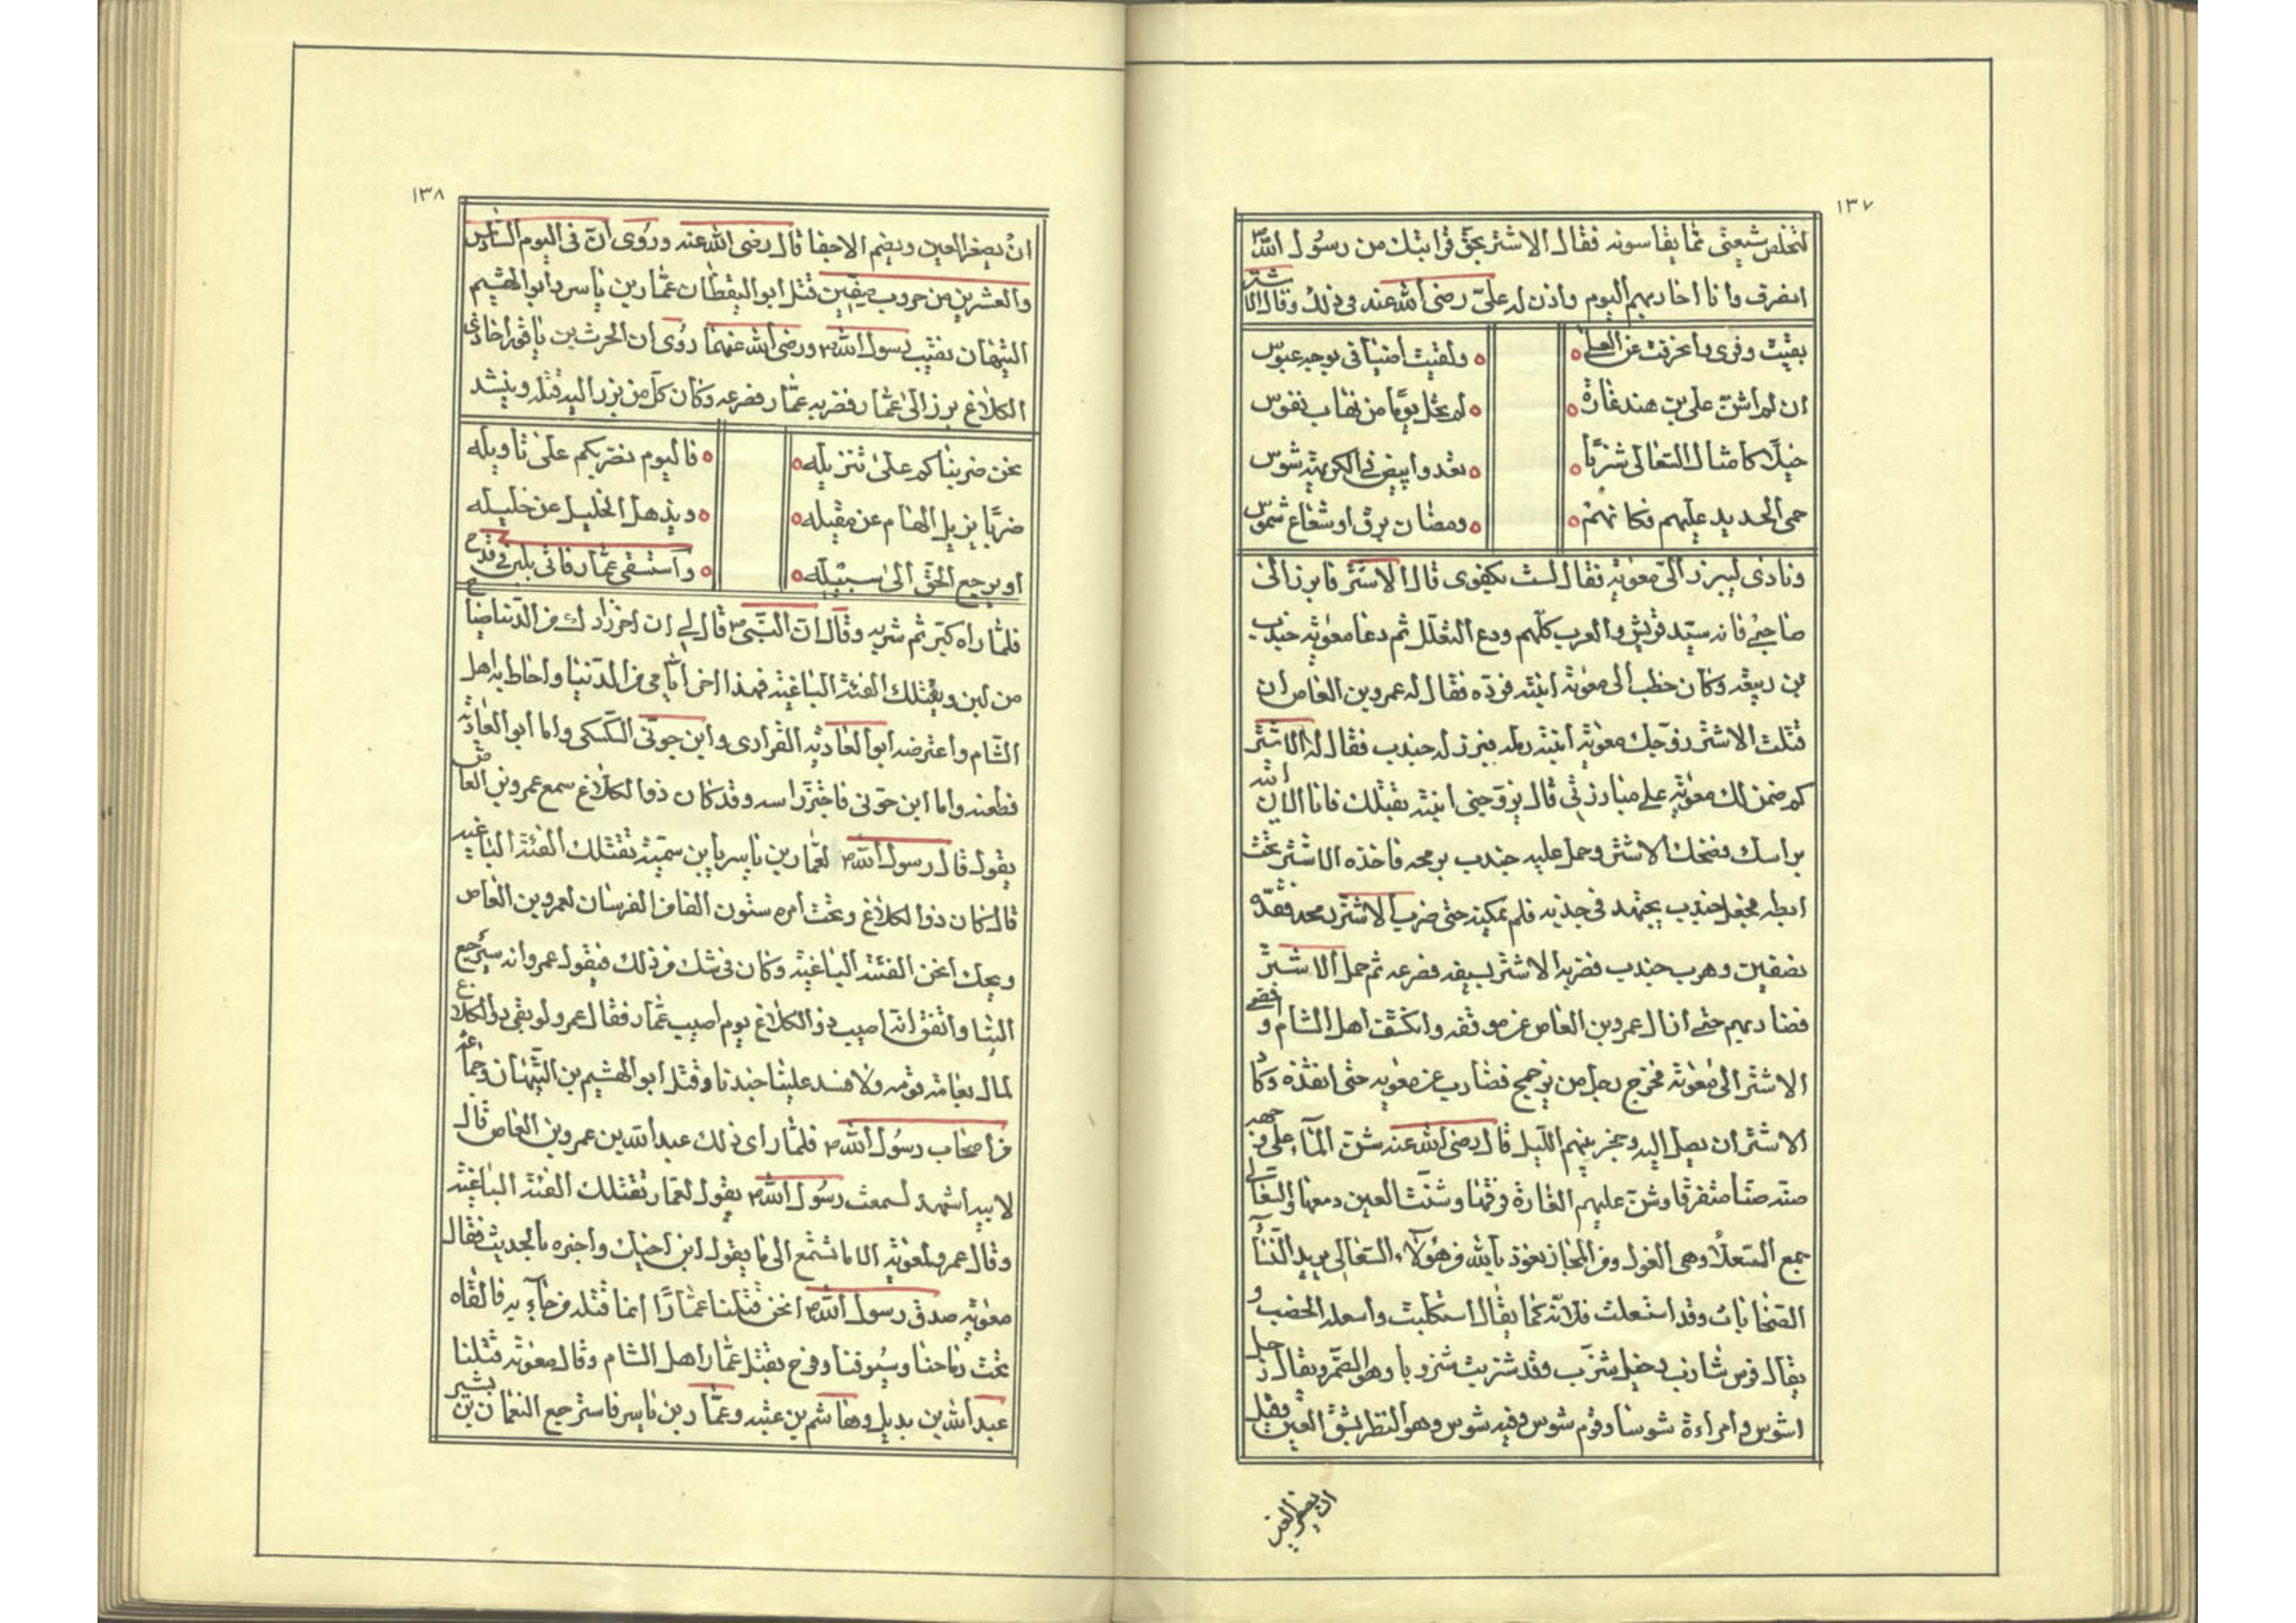 ١٣٧
لتخلص شيعتى مما يقاسونه فقال الاشتر بحق قرابتك من رسول الله
انصرف وانا احاربهم اليوم واذن له على رضى الله عنه فى ذلك وقال الاشتر
بقيت وفرى وانحرفت عن العلى ولقيت اضيافى بوجه عبوس
ان لم اشن على بن هند غارة لم تخل يوما من نهاب نفوس
خيلا كامثال السعالى شزبا تغدوا ببيض فى الكريهة شوس
حمى الحديد عليهم فكانهم ومضان برق او شعاع شموس
ونادى ليبرز الى معوية فقال لست بكفوى قال الاشتر فابرز الى
صاحبى فانه سيد قريش والعرب كلهم ودع التعلل ثم دعا معوية جندب
بن ربيعة وكان خطب الى معوية ابنته فرده فقال له عمرو بن العاص ان
قتلت الاشتر زوجك معوية ابنته رملة فبرز له جندب فقال له الاشتر
كم ضمن لك معوية على مبارزتى قال يزوجنى ابنته بقتلك فانا الان اتيه
براسك فضحك الاشتر وحمل عليه جندب برمحه فاخذه الاشتر تحت
ابطه فجعل جندب يجتهد فى جذبه فلم يمكنه حتى ضرب الاشتر رمحه فقده
نصفين وهرب جندب فضربه الاشتر بسيفه فصرعه ثم حمل الاشتر
فضاربهم حتى ازال عمرو بن العاص عن موقفه وانكشف اهل الشام و
الاشتر الى معوية فخرج رجل من جمح فضارب عن معوية حتى انقذه وكا
الاشتر ان يصل اليه وحجز بينهم الليل قال رضى الله عنه شن الماء على وجهه
صبه صبا متفرقا وشن عليهم الغارة فرقها وشنت العين دمعها والسعالى
جمع السعلاة وهى الغول ومن المجاز نعوذ بالله من هؤلاء السعالى يريد النساء
الصخابات وقد استعلت فلانة كما يقال استكلبت
يقال فرس شازب وخيل شزب وقد شزبت شزوبا وهو الضمر ويقال رجل
اشوس وامراءة شوسا وقوم شوس وفيه شوس وهو النظر بشق العين وقيل
ان يصغر العين
١٣٨
ان يصغر العين ويضم الاجفا قال رضى الله عنه وروى ان فى اليوم السادس
والعشرين من حروب صفين قتل ابو اليقظان عمار بن ياسر وابو الهشيم
التيهان نقيب رسول الله ورضى الله عنهما روى ان الحرث بن باقور اخا ذى
الكلاغ برز الى عمار فضربه عمار فصرعه وكان كل من برز اليه قتله وينشد
نحن ضربناكم على تنزيله فاليوم نضربكم على تاويله
ضربا يزيل الهام عن مقيله ويذهل الخليل عن خليله
او يرجع الحق الى سبيله واستسقى عمار فاتى بلبن فى قدح
فلما راه كبر ثم شربه وقال ان النبى قال لى ان اخر زادك من الدنيا ضيا
من لبن ويقتلك الفئة الباغية فهذا اخر ايامى من الدنيا واحاط به اهل
الشام واعترضه ابو العادية الفزارى وابن جوتى السكسكى واما ابو العادية
فطعنه واما ابن جوتى فاجتز راسه وقد كان ذو الكلاغ سمع عمرو بن العاص
يقول قال رسول الله لعمار بن ياسر يا بن سمية تقتلك الفئة الباغيه
قال كان ذو الكلاغ وتحت امره ستون الفا من الفرسان لعمرو بن العاص
ويحك انحن الفئة الباغية وكان فى شك من ذلك فيقول عمرو انه سيرجع
الينا واتفق انه اصيب ذو الكلاغ يوم اصيب عمار فقال عمرو لو بقى ذو الكلاغ
لمال بعامة قومه ولافسد علينا جندنا وقتل ابو الهشيم بن التيهان وجماعة
من اصحاب رسول الله فلما راى ذلك عبد الله بن عمرو بن العاص قال
لابيه اشهد لسمعت رسول الله يقول لعمار تقتلك الفئة الباغية
وقال عمرو لمعوية الا ما تسمع الى ما يقول ابن اخيك واخبره بالحديث فقال
معوية صدق رسول الله انحن قتلنا عمارا انما قتله من جاء به فالقاه
تحت رماحنا وسيوفنا وفرح بقتل عمار اهل الشام وقال معوية قتلنا
عبد الله بن بديل وهاشم بن عتبه وعمار بن ياسر فاسترجع النعمان بن بشير